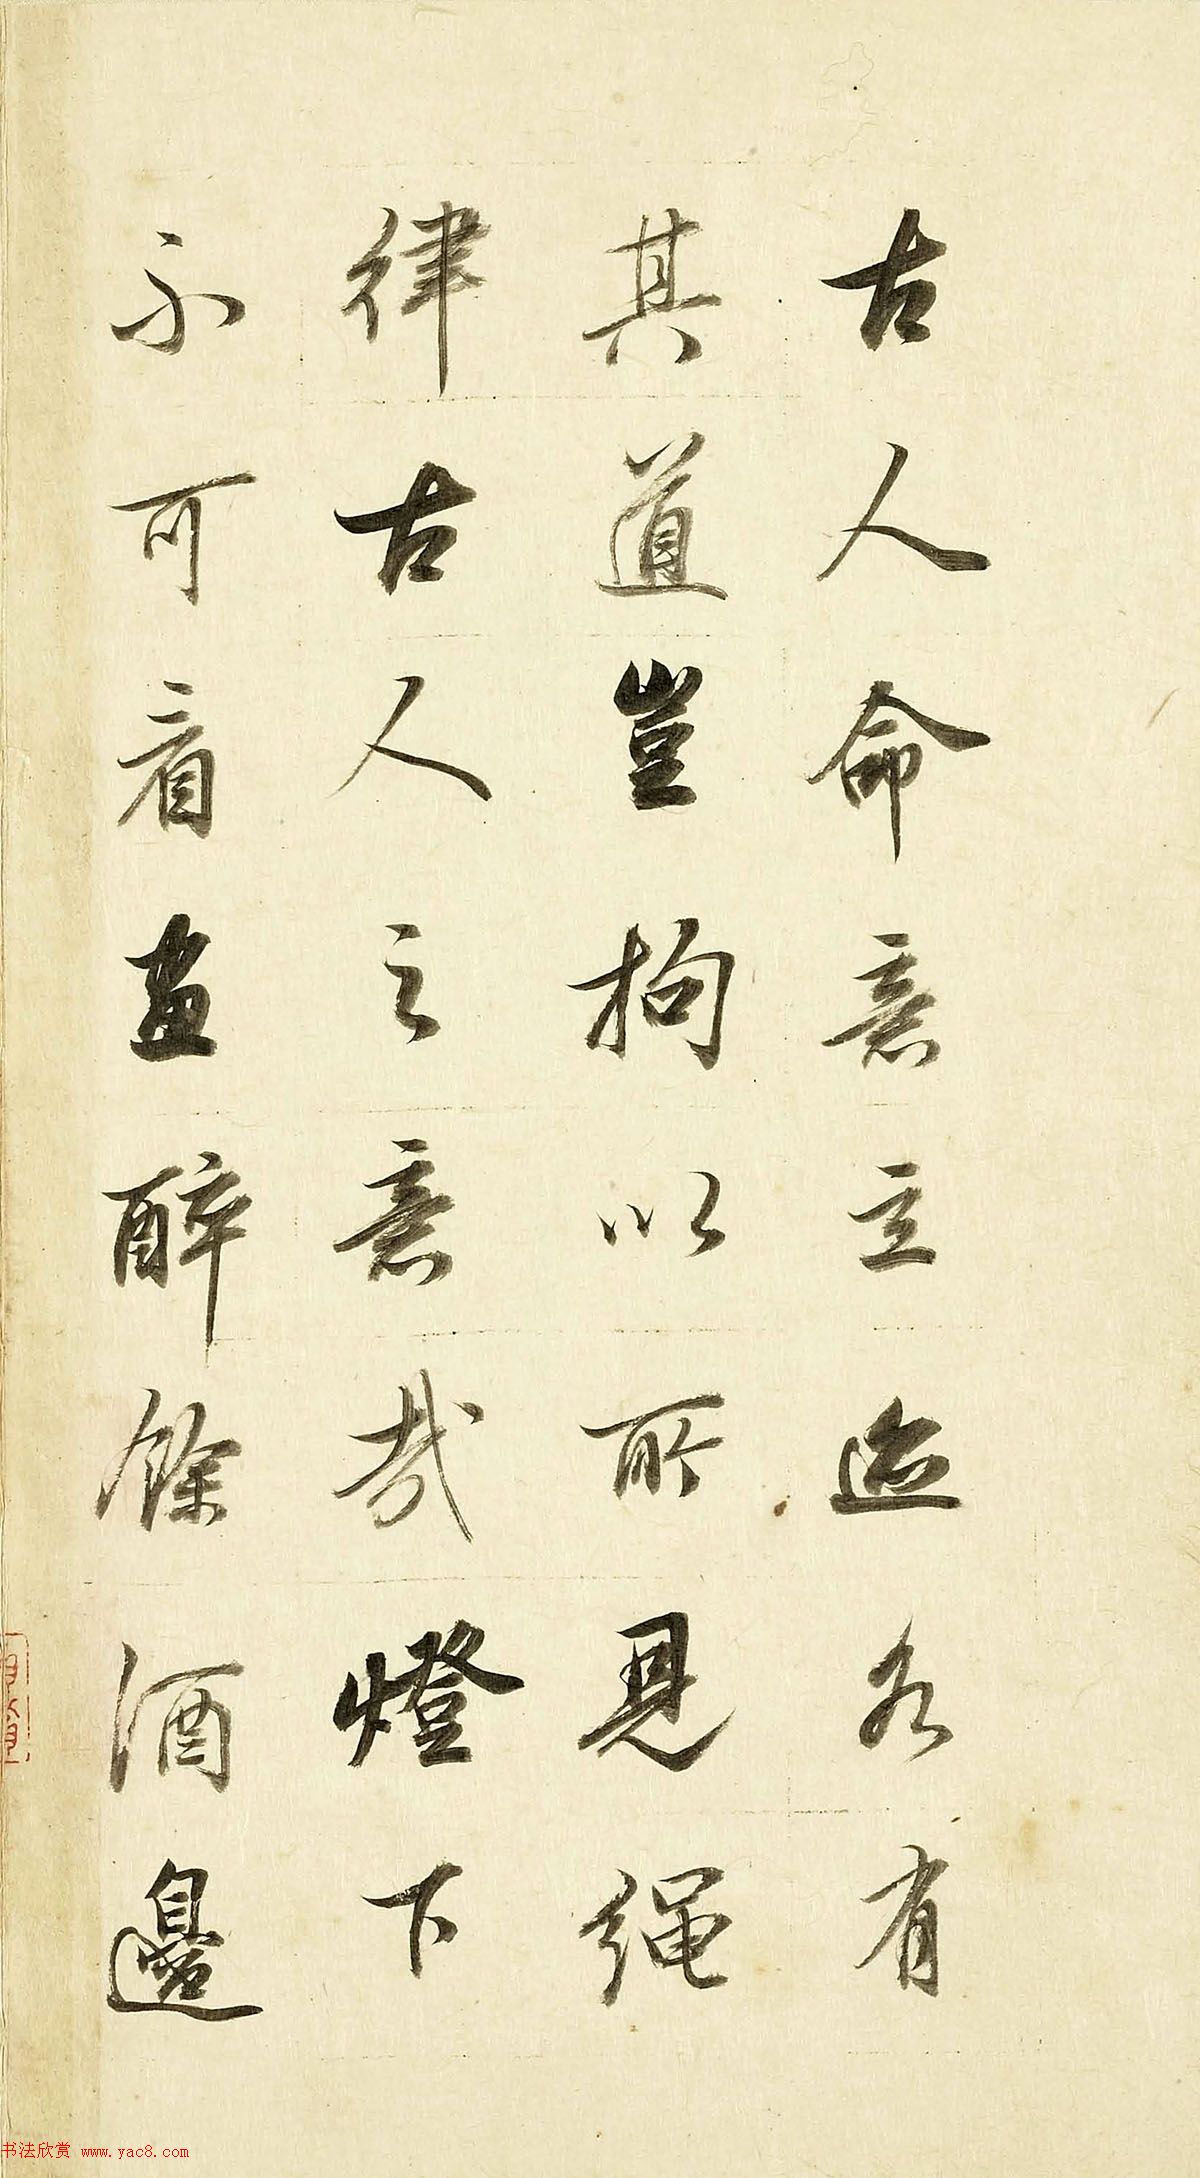 古人命意立迹各有
其道豈拘以所見繩
律古人之意哉燈下
不可看畫醉餘酒邊
书法欣赏 www.yac8.com